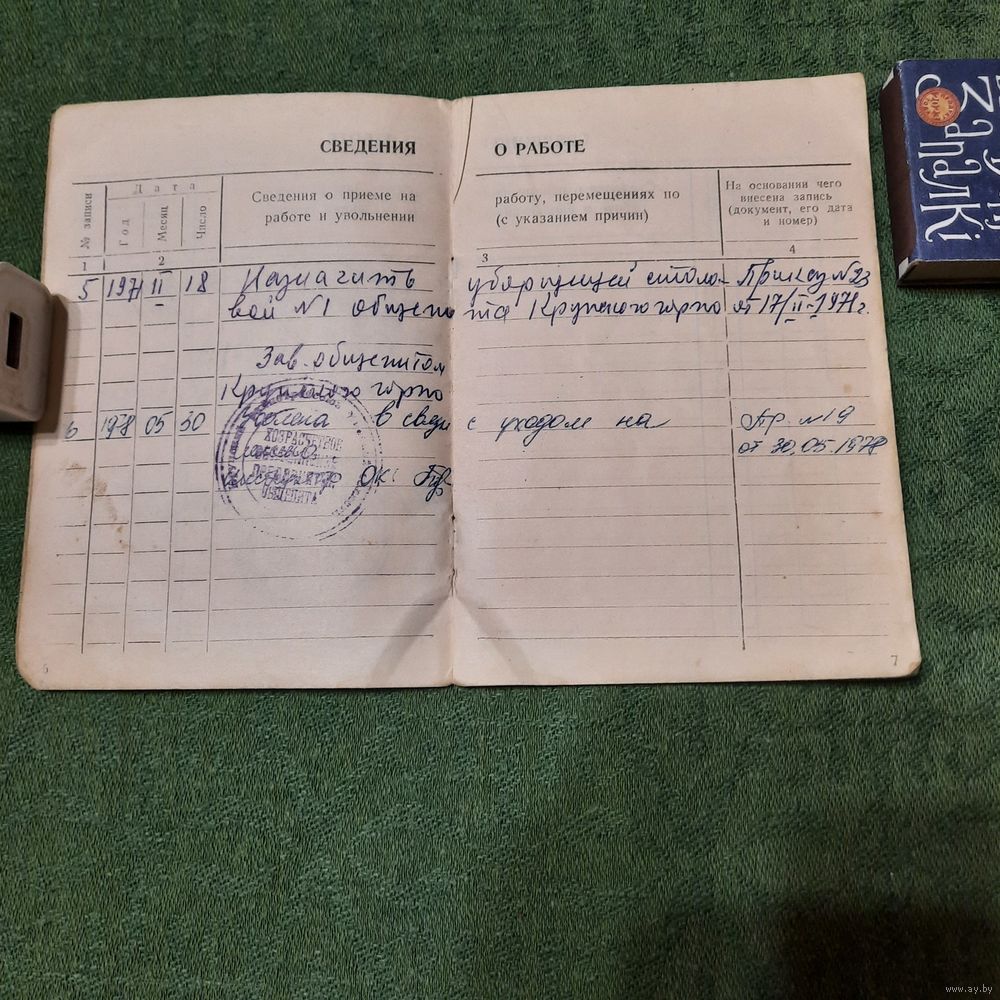 СВЕДЕНИЯ О РАБОТЕ
№ записи
Дата
Год
Месяц
Число
Сведения о приеме на работу, перемещениях по
работе и увольнении (с указанием причин)
На основании чего
внесена запись
(документ, его дата
и номер)
1 2 3 4
5 1971 II 18 Назначить уборщицей столо- Приказ №23
вой №1 общепита Крупского горпо от 17/II-1971г.
Зав. общепитом
Крупского горпо
6 1978 05 30 в связи с уходом на Пр. №19
от 30.05.1978
ОК:
ХОЗРАСЧЕТНОЕ
ПРЕДПРИЯТИЕ
ОБЩЕПИТА
6
7
Запалкі
www.ay.by